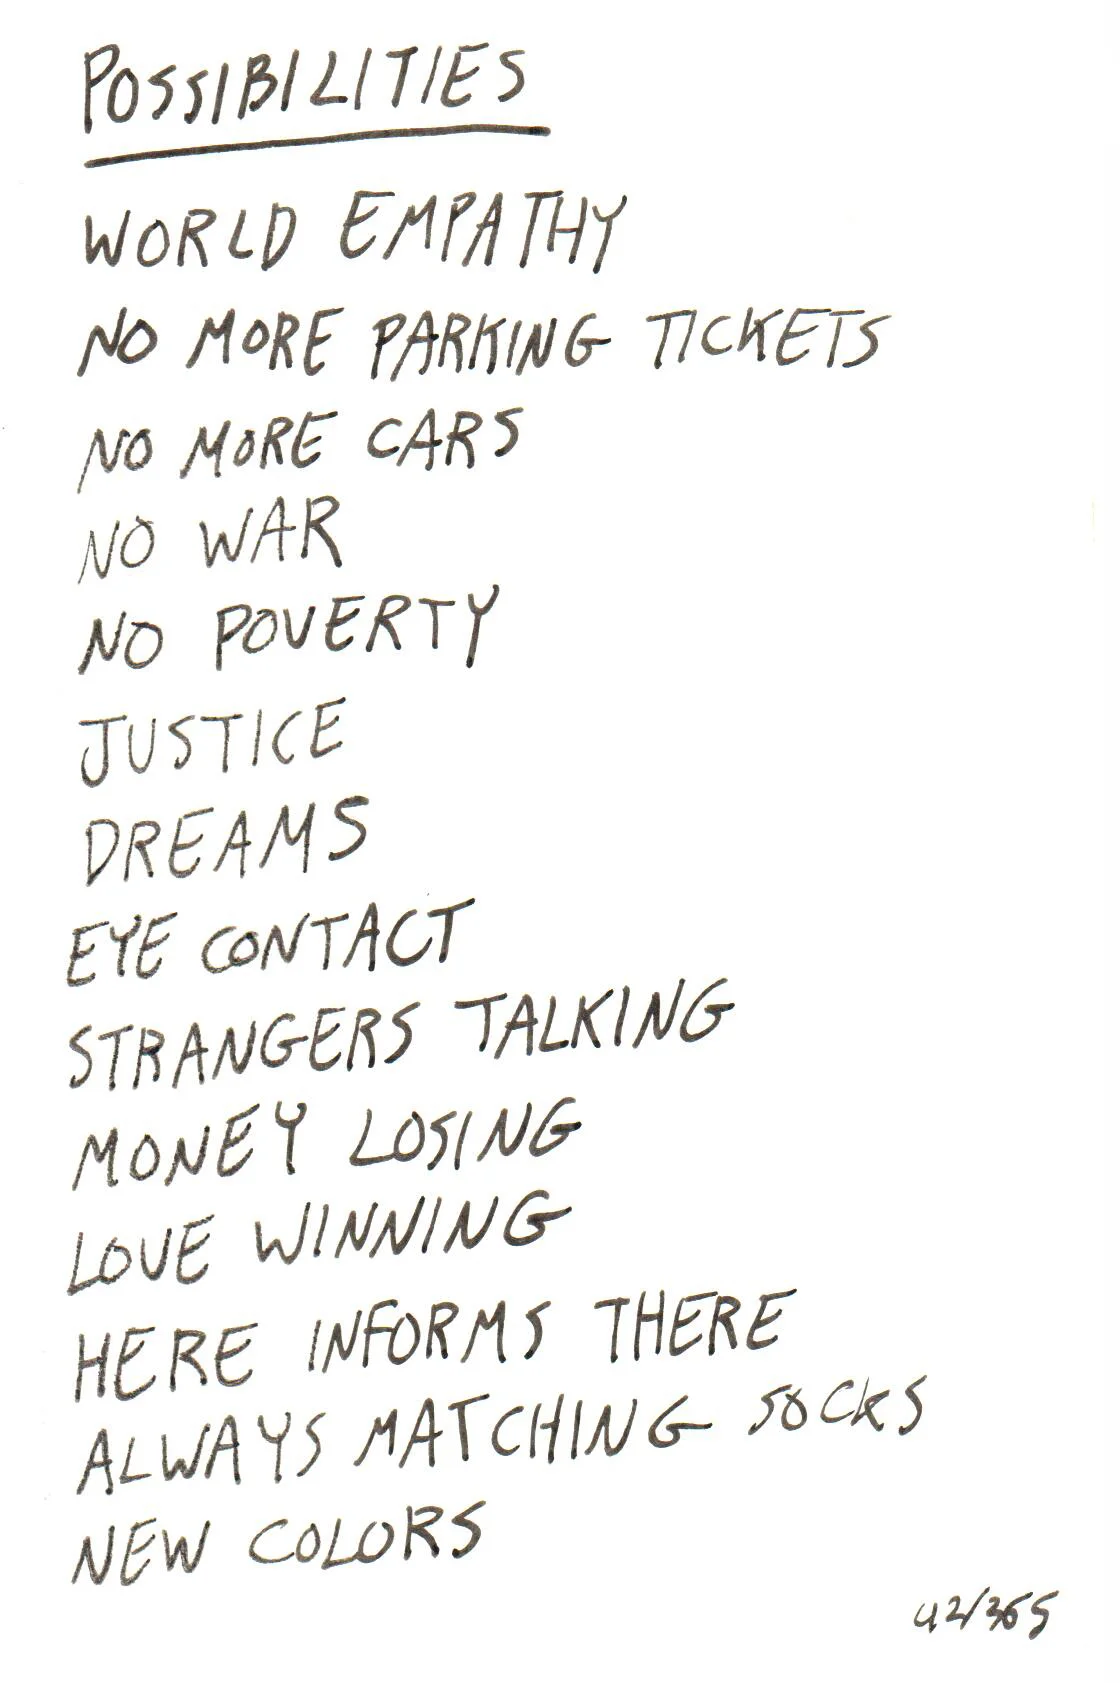 POSSIBILITIES
WORLD EMPATHY
NO MORE PARKING TICKETS
NO MORE CARS
NO WAR
NO POVERTY
JUSTICE
DREAMS
EYE CONTACT
STRANGERS TALKING
MONEY LOSING
LOVE WINNING
HERE INFORMS THERE
ALWAYS MATCHING SOCKS
NEW COLORS
42/365